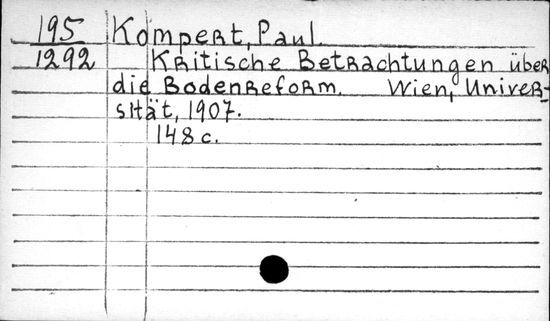 195 Kompert, Paul.
1292 Kritische Betrachtungen über
die Bodenreform. Wien, Univer-
sität, 1907.
148 c.